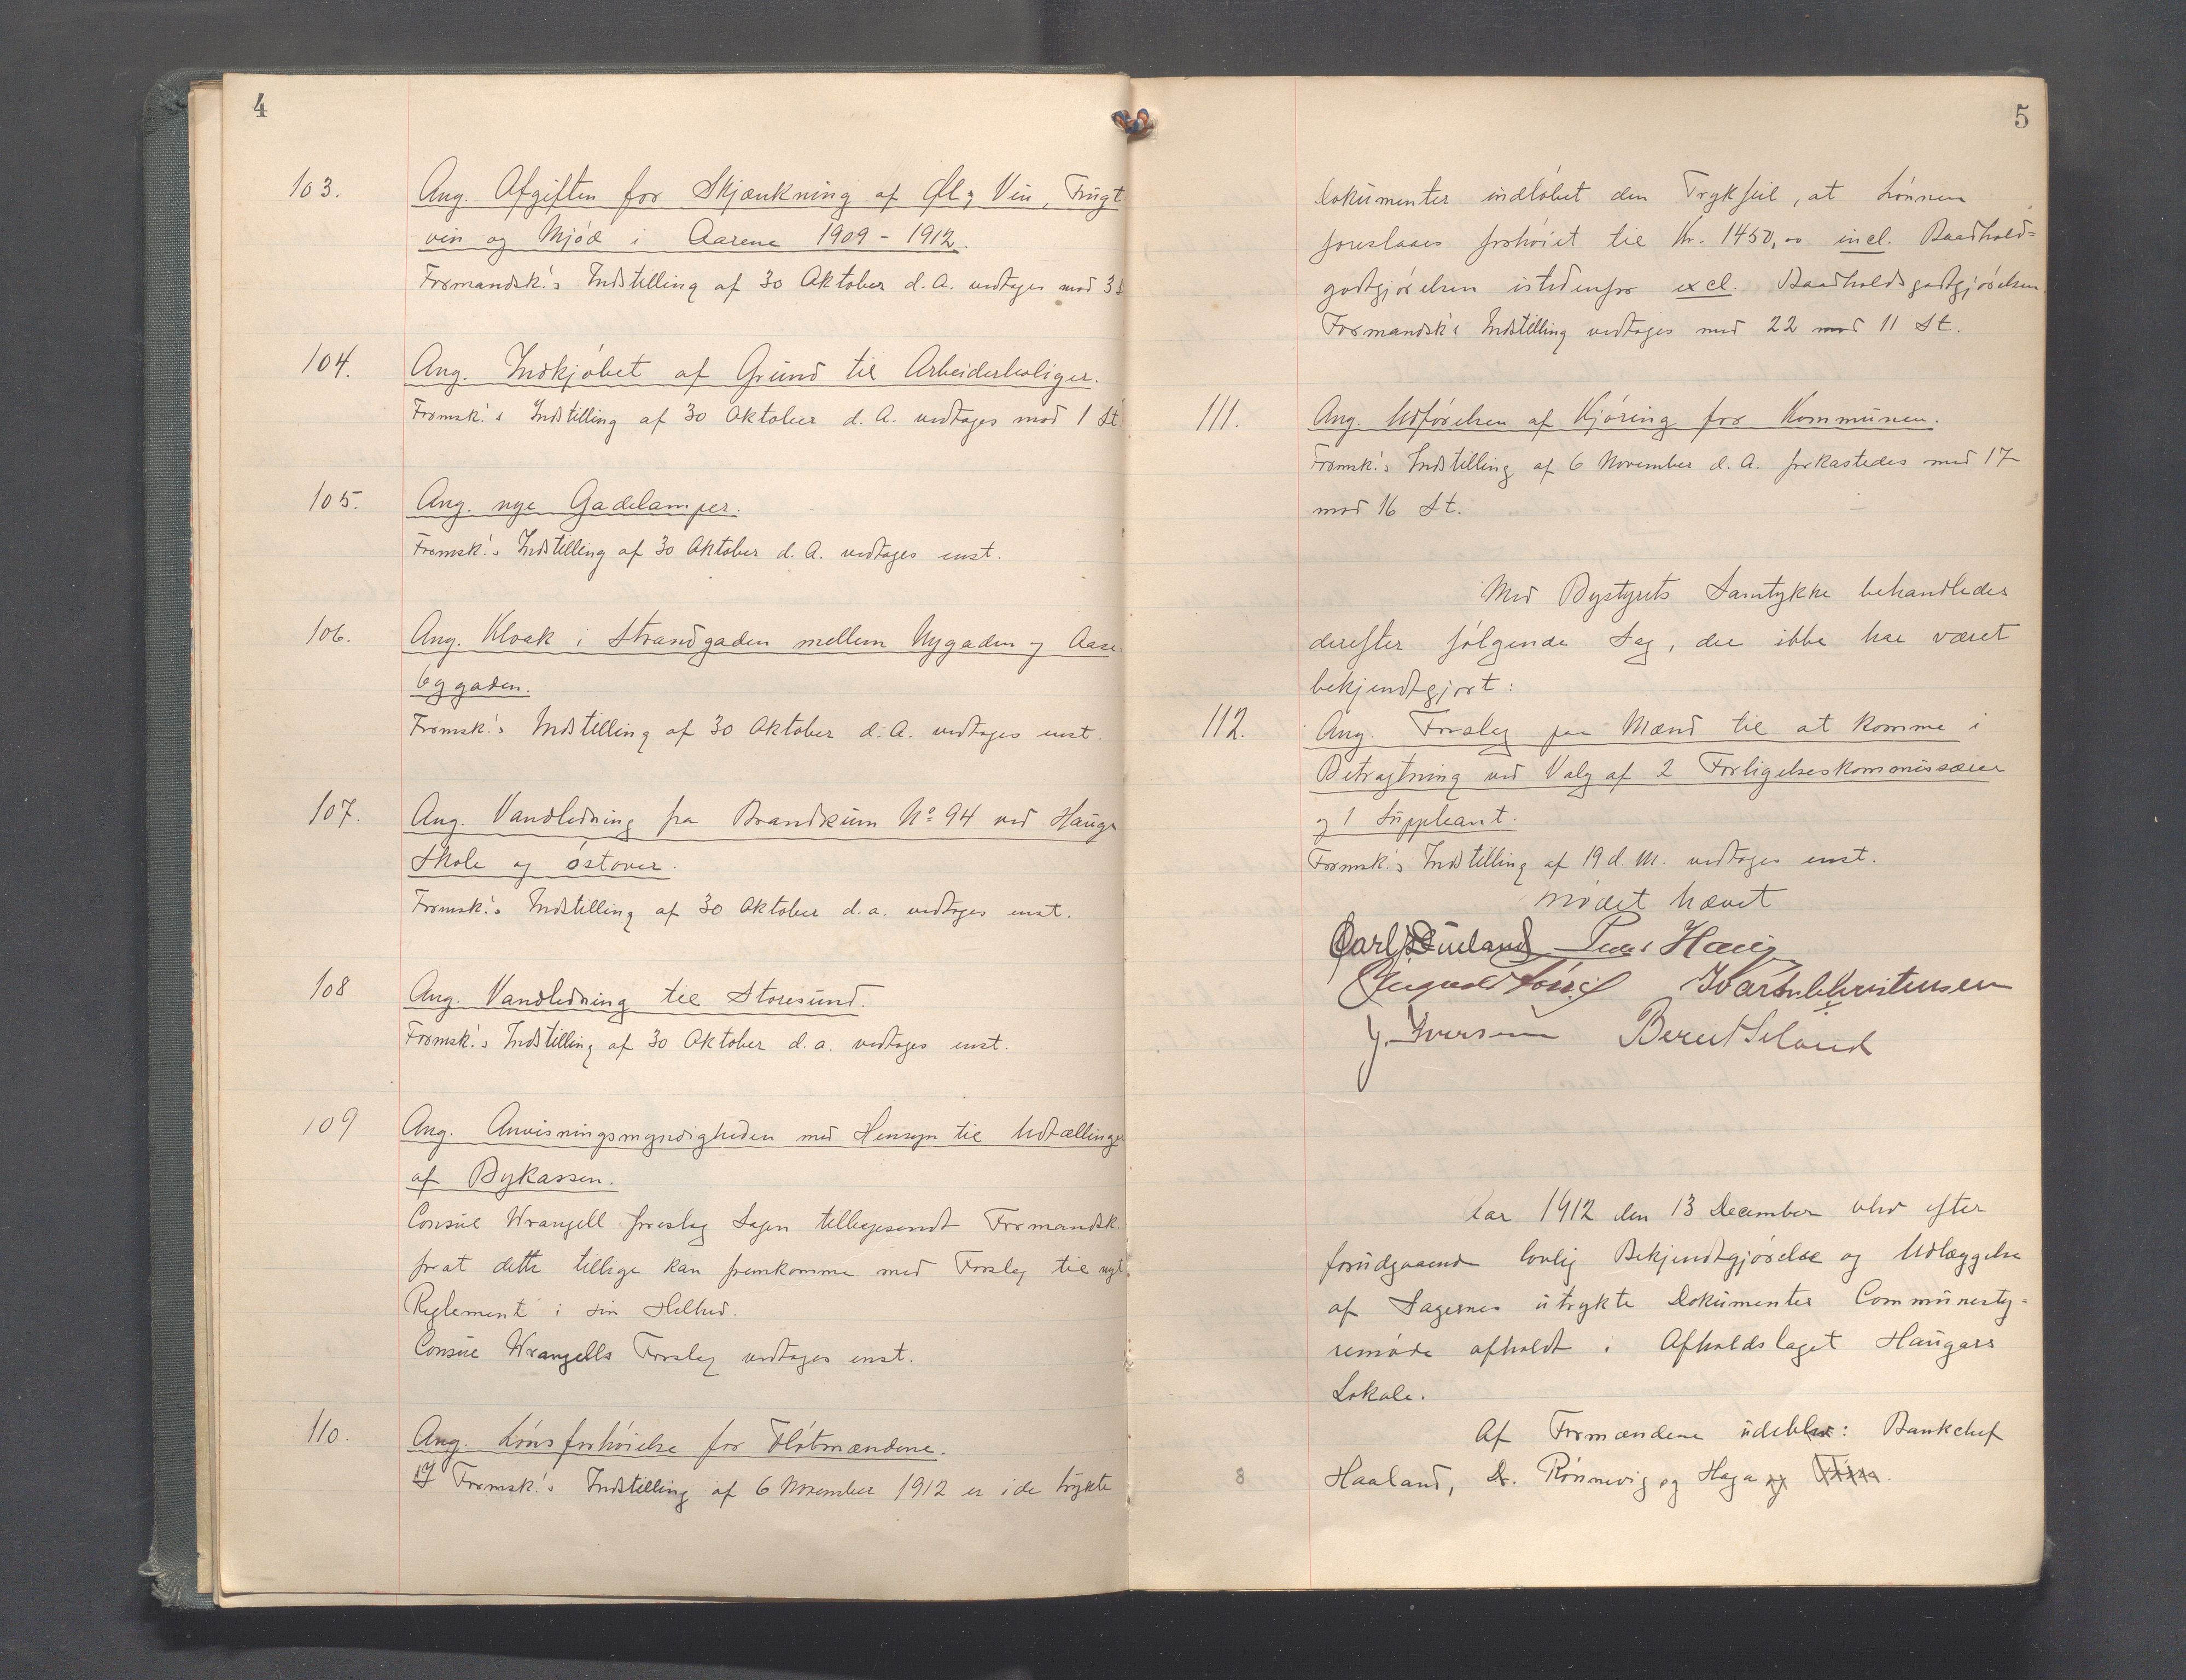 4
103. Ang. Afgiften for Skjænkning af Øl, Vin, Frugt
vin og Mjød i Aarene 1909 - 1912.
Formandsk.'s Indstilling af 30 Oktober d. A. vedtages mod 3 S
104. Ang. Indkjøbet af Grund til Arbeiderboliger.
Formsk.'s Indstilling af 30 Oktober d. A. vedtages mod 1 St
105. Ang. nye Gadelamper.
Formsk.'s Indstilling af 30 Oktober d. A. vedtages enst.
106. Ang. Kloak i Strandgaden mellem Nygaden og Aase
byggaden.
Formsk.'s Indstilling af 30 Oktober d. A. vedtages enst.
107. Ang. Vandledning fra Brandkum No 94 ved Hauge
Skole og østover.
Formsk.'s Indstilling af 30 Oktober d. a. vedtages enst.
108 Ang. Vandledning til Storesund.
Formsk.'s Indstilling af 30 Oktober d. a. vedtages enst.
109 Ang. Anvisningsmyndigheden med Hensyn til Udtællinger
af Bykassen.
Consul Wrangell foreslog Sagen tilbagesendt Formandsk.
forat dette tillige kan fremkomme med Forslag til nyt
Reglement i sin Helhed.
Consul Wrangells Forslag vedtages enst.
110. Ang. Lønsforhøielse for Fløtmændene.
I Formsk.'s Indstilling af 6 November 1912 er i de trykte
5
Dokumenter indløbet den Trykfeil, at Lønnen
foreslaaes forhøiet til Kr. 1450,00 incl. Baadhold=
godtgjørelsen istedenfor excl. Baadholdsgodtgjørelsen.
Formandsk's Indstilling vedtages med 22 mod 11 St.
111. Ang. Udførelsen af Kjøring for Kommunen.
Formsk.'s Indstilling af 6 November d. A. forkastedes med 17
mod 16 St.
Med Bystyrets Samtykke behandledes
derefter følgende Sag, der ikke har været
bekjendtgjort:
112. Ang. Forslag paa Mænd til at komme i
Betragtning ved Valg af 2 Forligelseskommissærer
og 1 Suppleant.
Formsk.'s Indstilling af 19 d. M. vedtages enst.
Mødet hævet
Haug
Christensen
J. Iversen Berent Seland
Aar 1912 den 13 December blev efter
forudgaaende lovlig Bekjendtgjørelse og Udlæggelse
af Sagernes utrykte Dokumenter Communesty=
remøde afholdt i Afholdslaget Haugars
Lokale.
Af Formændene udeblev: Bankchef
8 Haaland, Dr. Rønnevig og Haga og